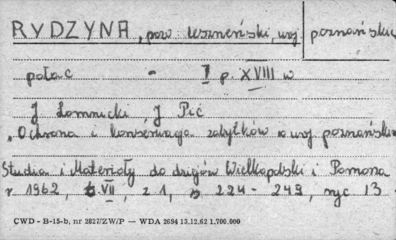 RYDZYNA, pow. leszneński, woj. poznańskie
pałac - I p. XVIII w
J Łomnicki, J Pić
"Ochrona i konserwacja zabytków w woj. poznańskim
Studia i Materiały do dziejów Wielkopolski i Pomorza
r. 1962, t. VII, z 1, s 224 - 249, ryc 13
CWD - B-15-b, nr 2827/ZW/P — WDA 2694 13.12.62 1.700.000